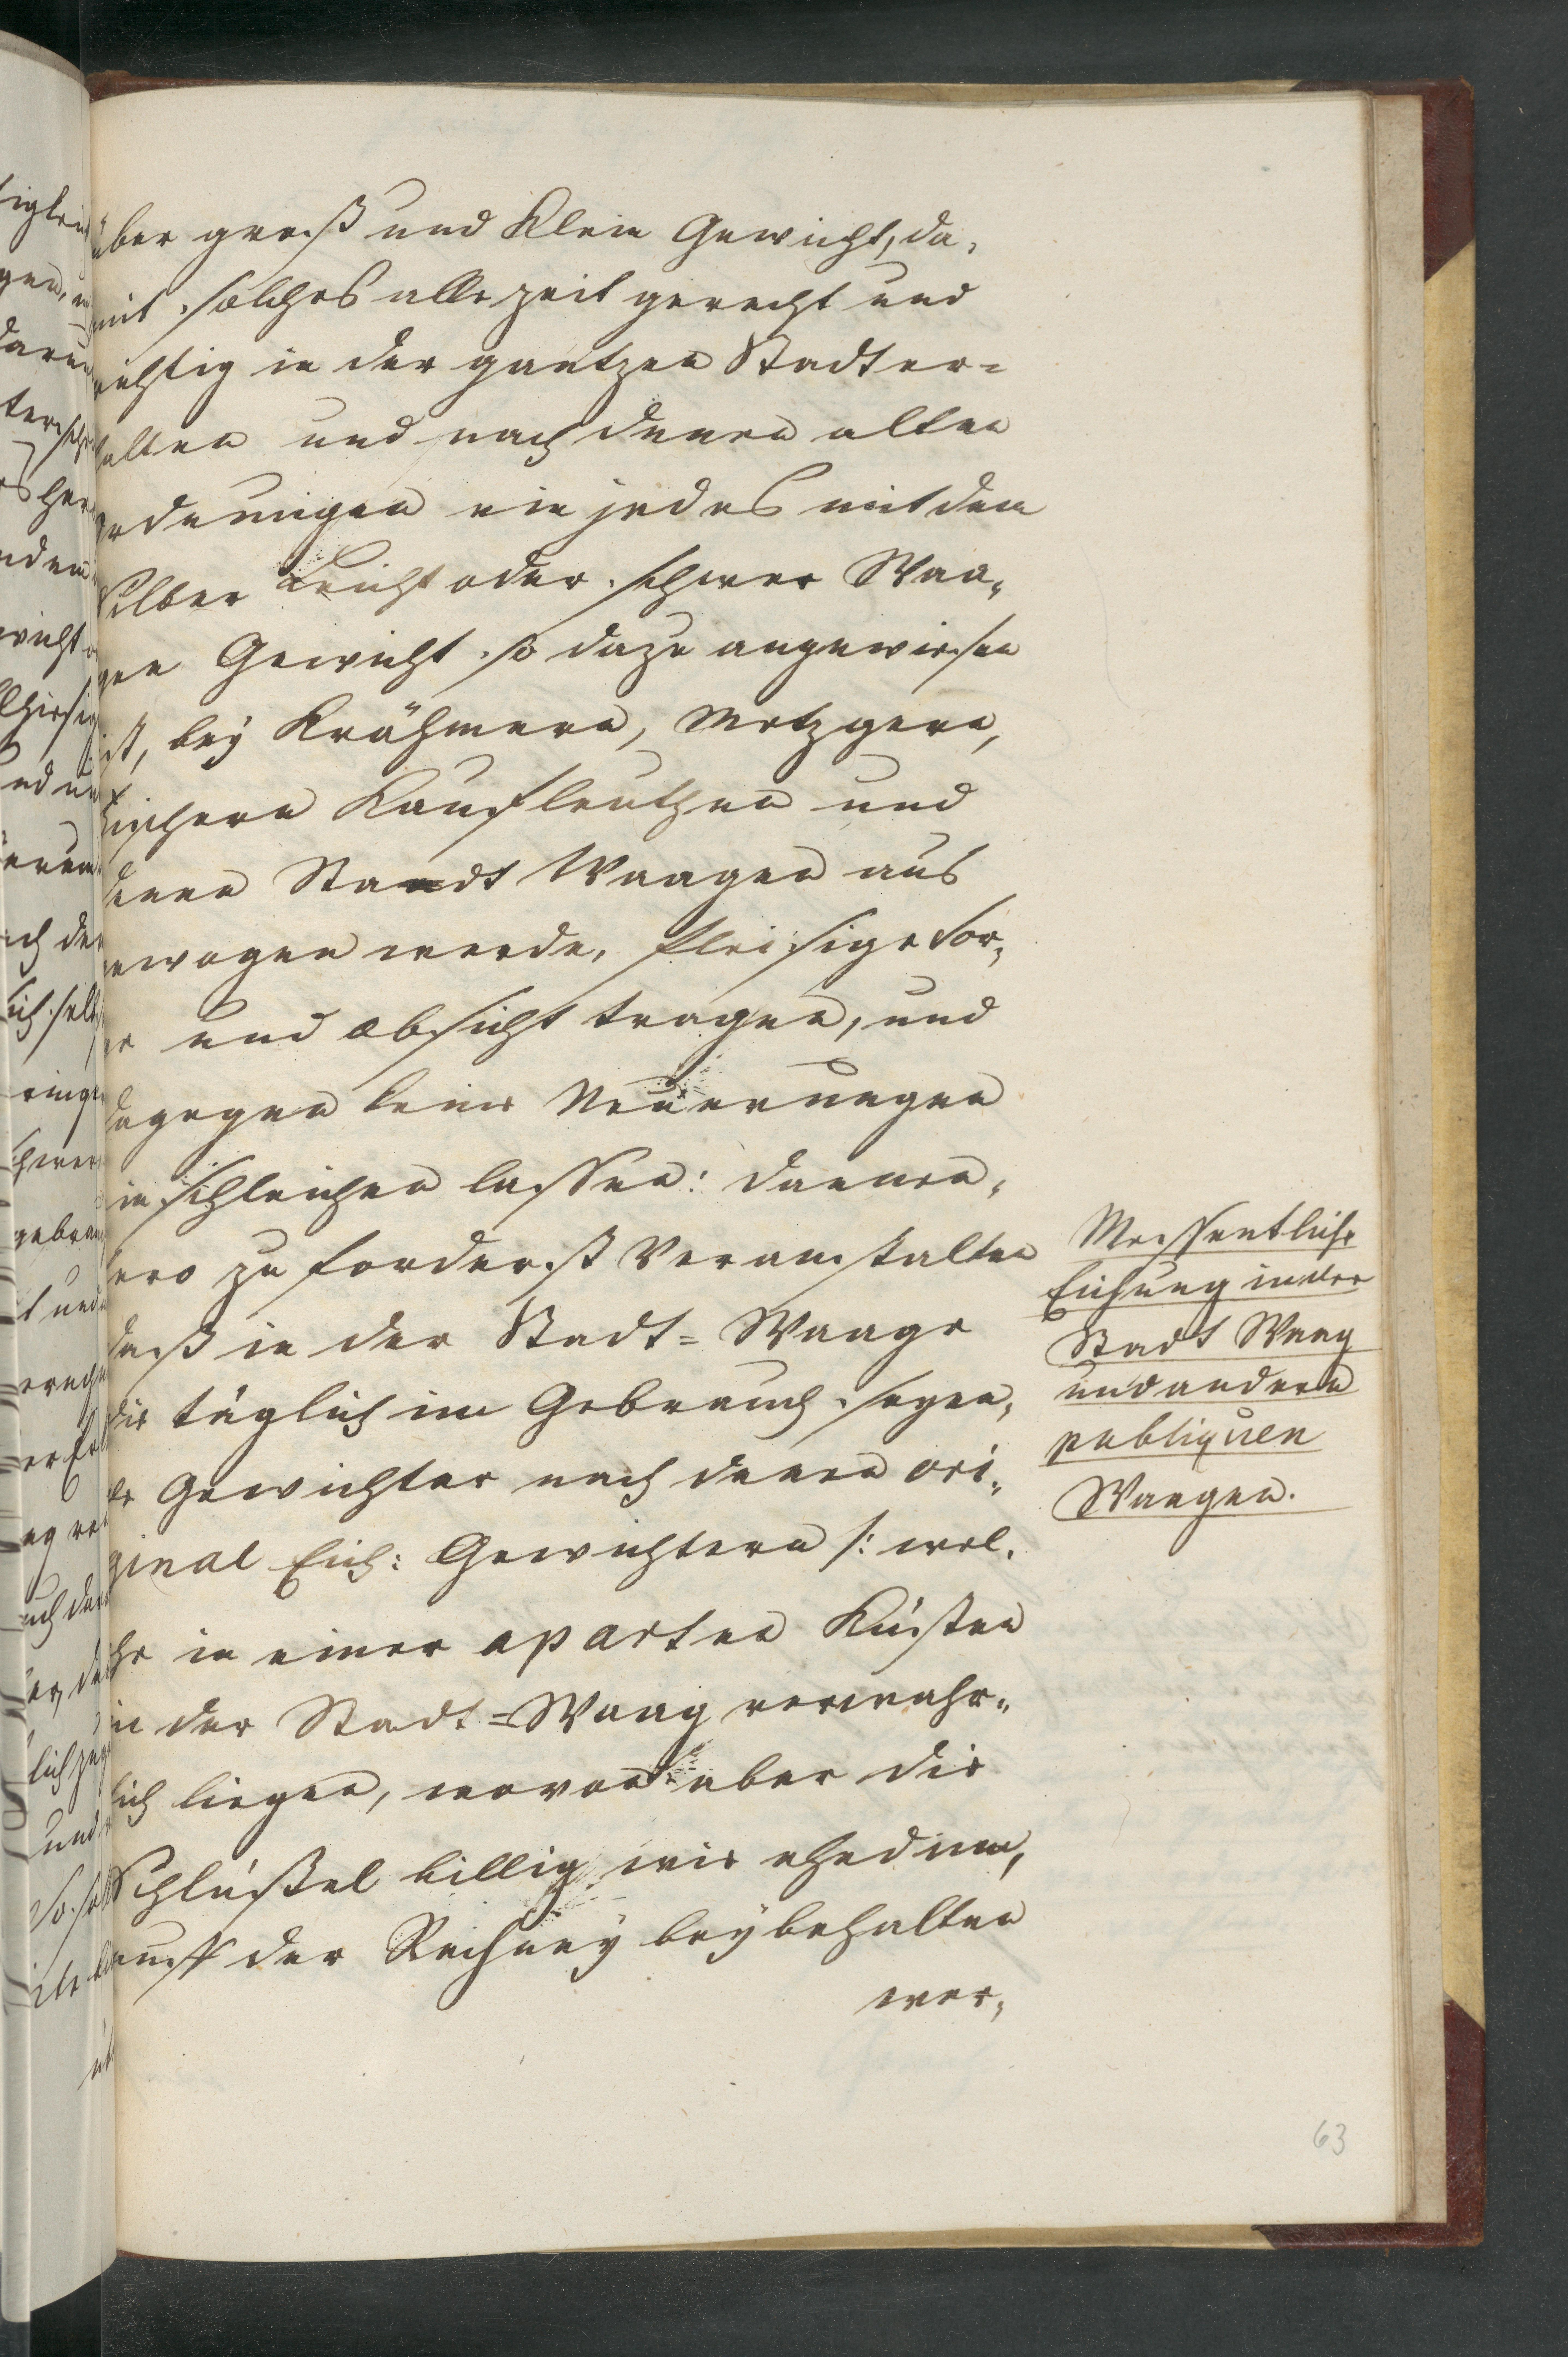 über groß und Klein Gewicht, da,
mit solches alle zeit gerecht und
richtig in der gantzen Stadt er=
halten und nach denen alten
ordnungen ein jedes mit dem
Silber Leicht oder schwer Waa,
gen Gewicht so dazu angewiesen
ist, bey Krähmern, Metzgern,
Fischern Kaufleuthen und
denen Stadt Waagen aus
gewogen werde, fleisige Sor,
ge und absicht tragen, und
dagegen keine Neuerungen
einschleichen lassen: dannen,
hero zu forderst Veranstalten
daß in der Stadt=Waage
die täglich im Gebrauch seyen,
de Gewichter nach denen ori,
ginal Eich: Gewichtern /: wel,
che in einer aparten Küsten
in der Stadt=Waag verwahr,
lich liegen, wovon aber die
Schlüßel billig wie ehedem,
auff der Rechney beybehalten
wer,
Wesentliche
Eichung in der
Stadt Waag
und andern
publiquen
Waagen.
63